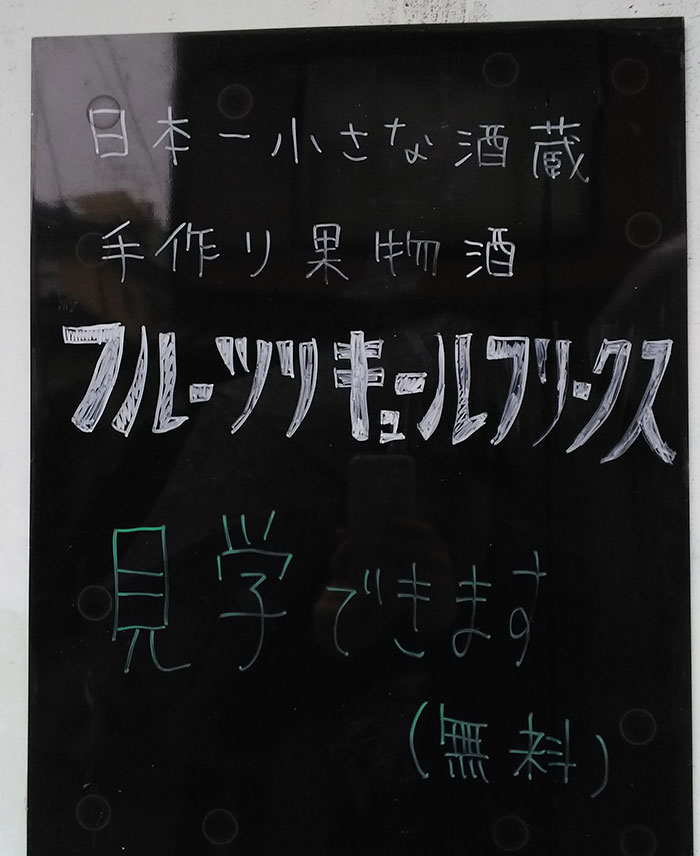 日本一小さな酒蔵
手作り果物酒
フルーツリキュールフリークス
見学できます
(無料)